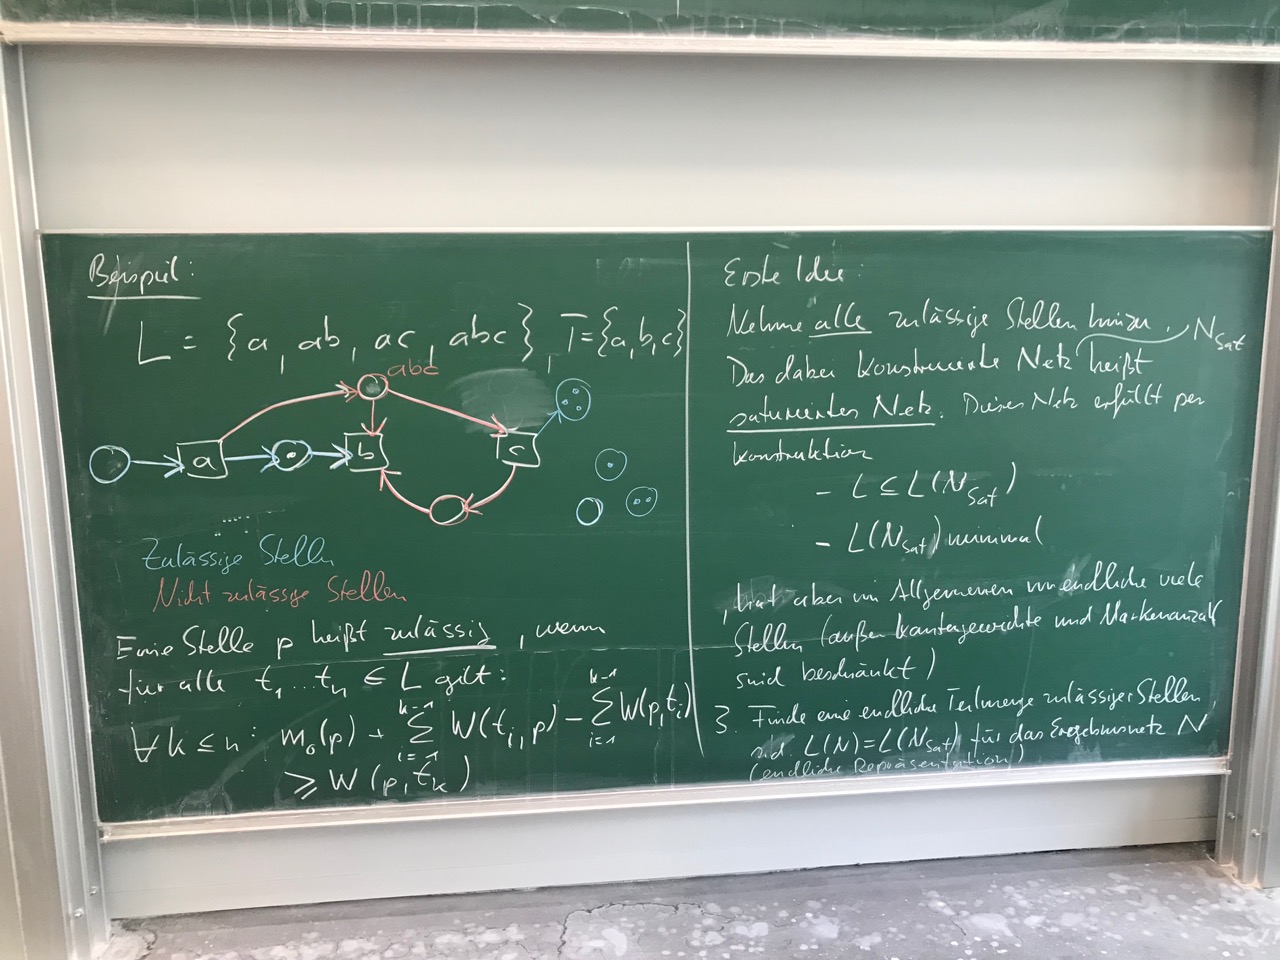 Beispiel:
L = {a, ab, ac, abc}, T={a,b,c}
abc
a
b
c
Zulässige Stellen
Nicht zulässige Stellen
Eine Stelle p heißt zulässig, wenn
für alle t₁...tₙ ∈ L gilt:
∀k ≤ n: m₀(p) + ∑_{i=1}^{k-1} W(tᵢ,p) - ∑_{i=1}^{k-1} W(p,tᵢ)
≥ W(p,tₖ)
Erste Idee:
Nehme alle zulässige Stellen hinzu. N_Sat
Das dabei konstruierte Netz heißt
saturiertes Netz. Dieses Netz erfüllt per
Konstruktion
- L ⊆ L(N_Sat)
- L(N_Sat) minimal
, hat aber im Allgemeinen unendliche viele
Stellen (außer Kantengewichte und Markenanzahl
sind beschränkt)
3. Finde eine endliche Teilmenge zulässiger Stellen
sd. L(N)=L(N_Sat) für das Ergebnisnetz N
(endliche Repräsentation)